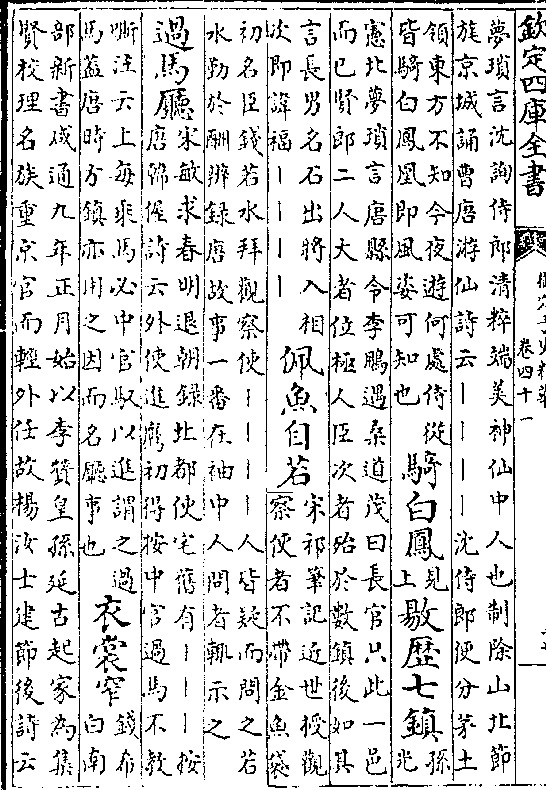 欽定四庫全書
卷四十一
夢瑣言沈詢侍郎清粹端美神仙中人也制除山北節
旄京城誦曹唐游仙詩云｜｜｜｜沈侍郎便分茅土
領東方不知今夜遊何處侍從
皆騎白鳳凰即風姿可知也
騎白鳳
見上
敭歴七鎮
孫
光
憲北夢瑣言唐縣令李鵬遇桑道茂曰長官只此一邑
而已賢郎二人大者位極人臣次者殆於數鎮後如其
言長男名石出將入相
次即諱福｜｜｜｜
佩魚自若
宋祁筆記近世授觀
察使者不帶金魚袋
初名臣錢若水拜觀察使｜｜｜｜人皆疑而問之若
水勌於酬辨録唐故事一番在袖中人問者輒示之
過馬廳
宋敏求春明退朝録北都使宅舊有｜｜｜按
唐韓偓詩云外使進鷹初得按中官過馬不教
嘶注云上每乘馬必中官馭以進謂之過
馬蓋唐時方鎮亦用之因而名廳事也
衣裳窄
錢希
白南
部新書咸通九年正月始以李贊皇孫延古起家為集
賢校理名族重京官而輕外任故楊汝士建節後詩云